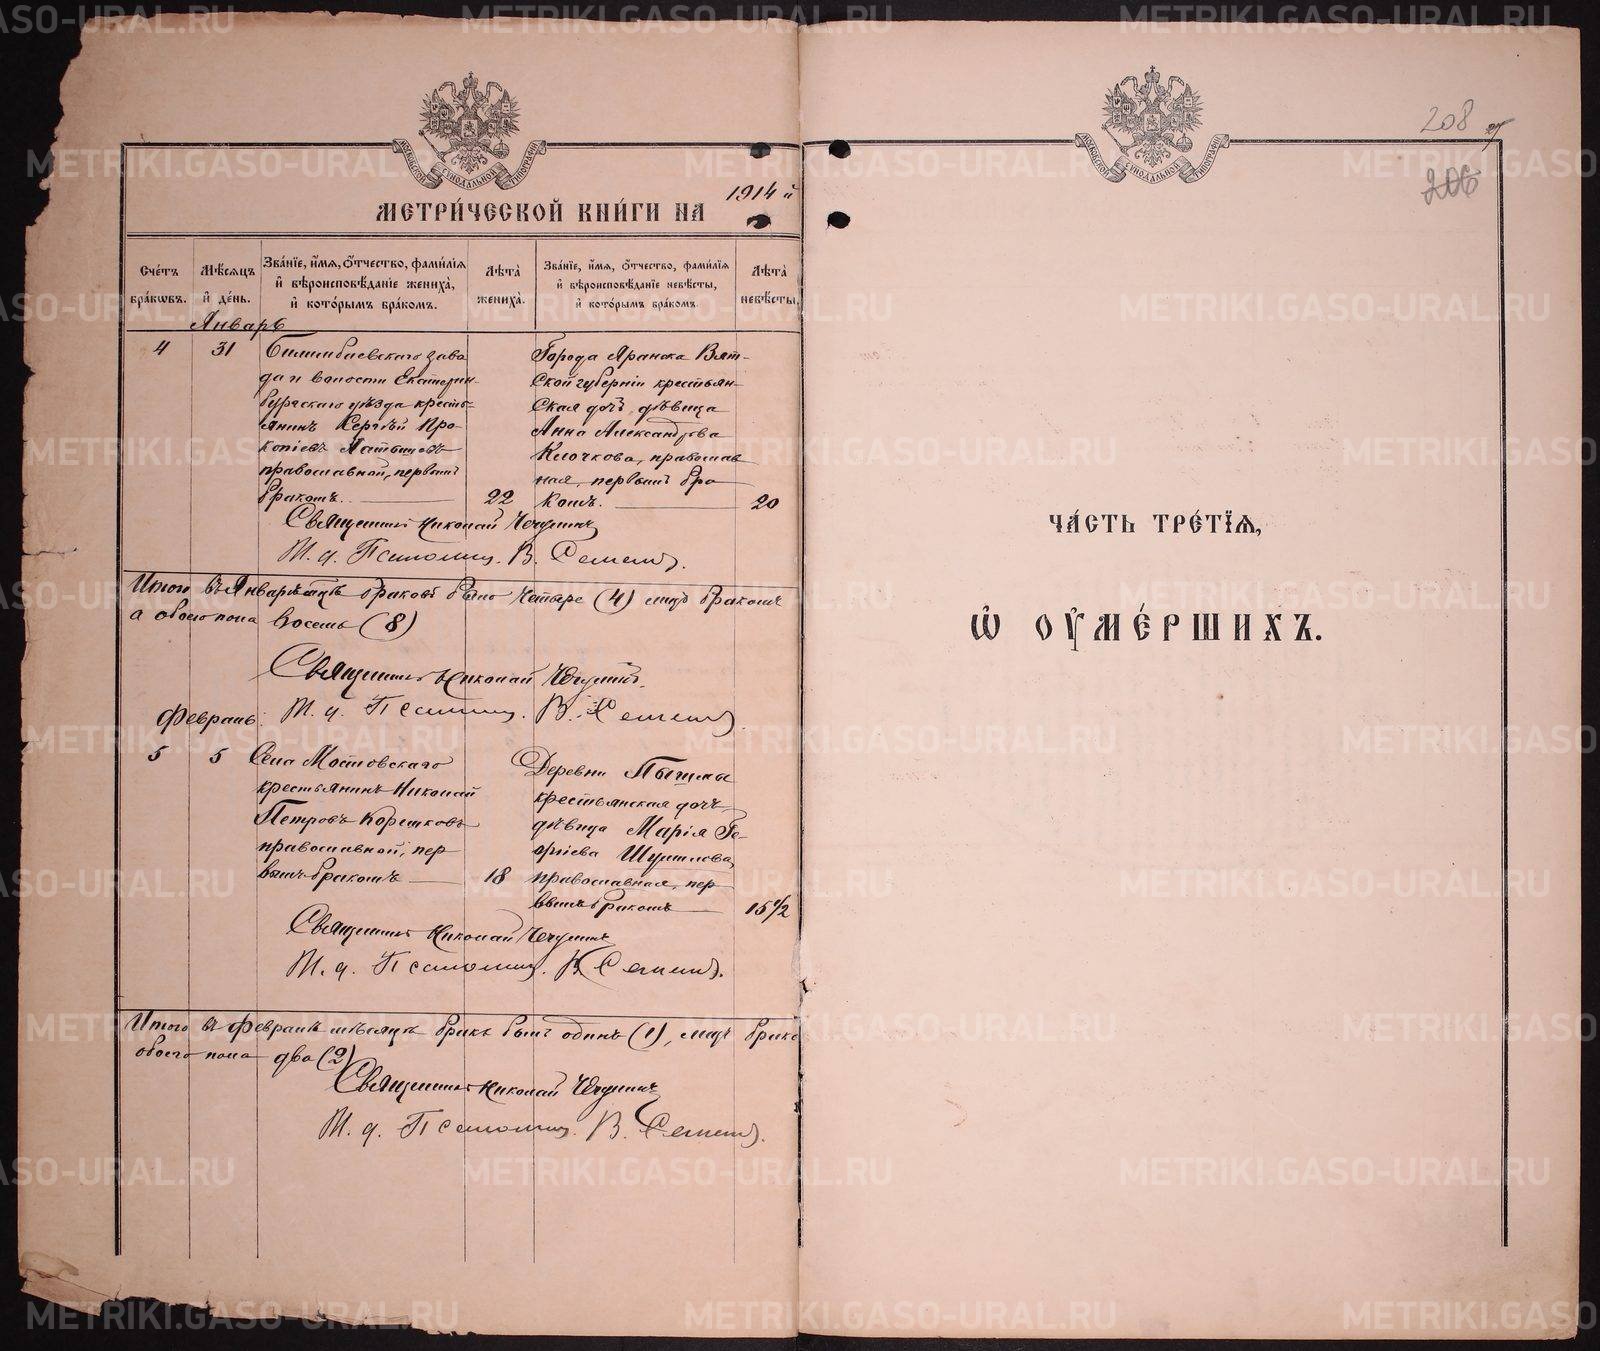 МЕТРИ́ЧЕСКОЙ КНИ́ГИ НА 1914 й
Сче́тъ бра́кѡвъ.
Мѣ́сяцъ и҆ де́нь.
Зва́нїе, и҆́мѧ, ѻ҆́тчество, фами́лїѧ и҆ вѣроисповѣ́данїе жениха̀, и҆ кото́рымъ бра́комъ.
Лѣ́та жениха̀.
Зва́нїе, и҆́мѧ, ѻ҆́тчество, фами́лїѧ и҆ вѣроисповѣ́данїе невѣ́сты, и҆ кото́рымъ бра́комъ.
Лѣ́та невѣ́сты.
Январь
4
31
Билимбаевскаго заво
да и волости Екатерин-
бургскаго уѣзда кресть-
янинъ Сергѣй Про-
копіевъ
православной, первымъ
бракомъ.
22
Города Яранска Вят-
ской губерніи крестьян-
ская дочь, дѣвица
Анна Александрова
Клочкова, православ
ная, первымъ бра
комъ.
20
Священникъ Николай
И. д. Псаломщ. В.
Итого въ Январѣ мцѣ браковъ было четыре (4) лицъ бракомъ
а обоего пола восемь (8)
Священникъ Николай
И. д. Псаломщ. В.
Февраль
5
5
Села Мостовскаго
крестьянинъ Николай
Петровъ Корешковъ
православной, пер
вымъ бракомъ
18
Деревни Пышмы
крестьянская дочь,
дѣвица Марія Ге-
оргіева Шумилова,
православная, пер
вымъ бракомъ
15 1/2
Священникъ Николай
И. д. Псаломщ. В.
Итого въ Февралѣ мѣсяцѣ бракъ былъ одинъ (1), лицъ брако
обоего пола два (2)
Священникъ Николай
И. д. Псаломщ. В.
208
206
ЧА́СТЬ ТРЕ́ТЇѦ,
Ѡ҆ ОУ҆МЕ́РШИХЪ.
METRIKI.GASO-URAL.RU